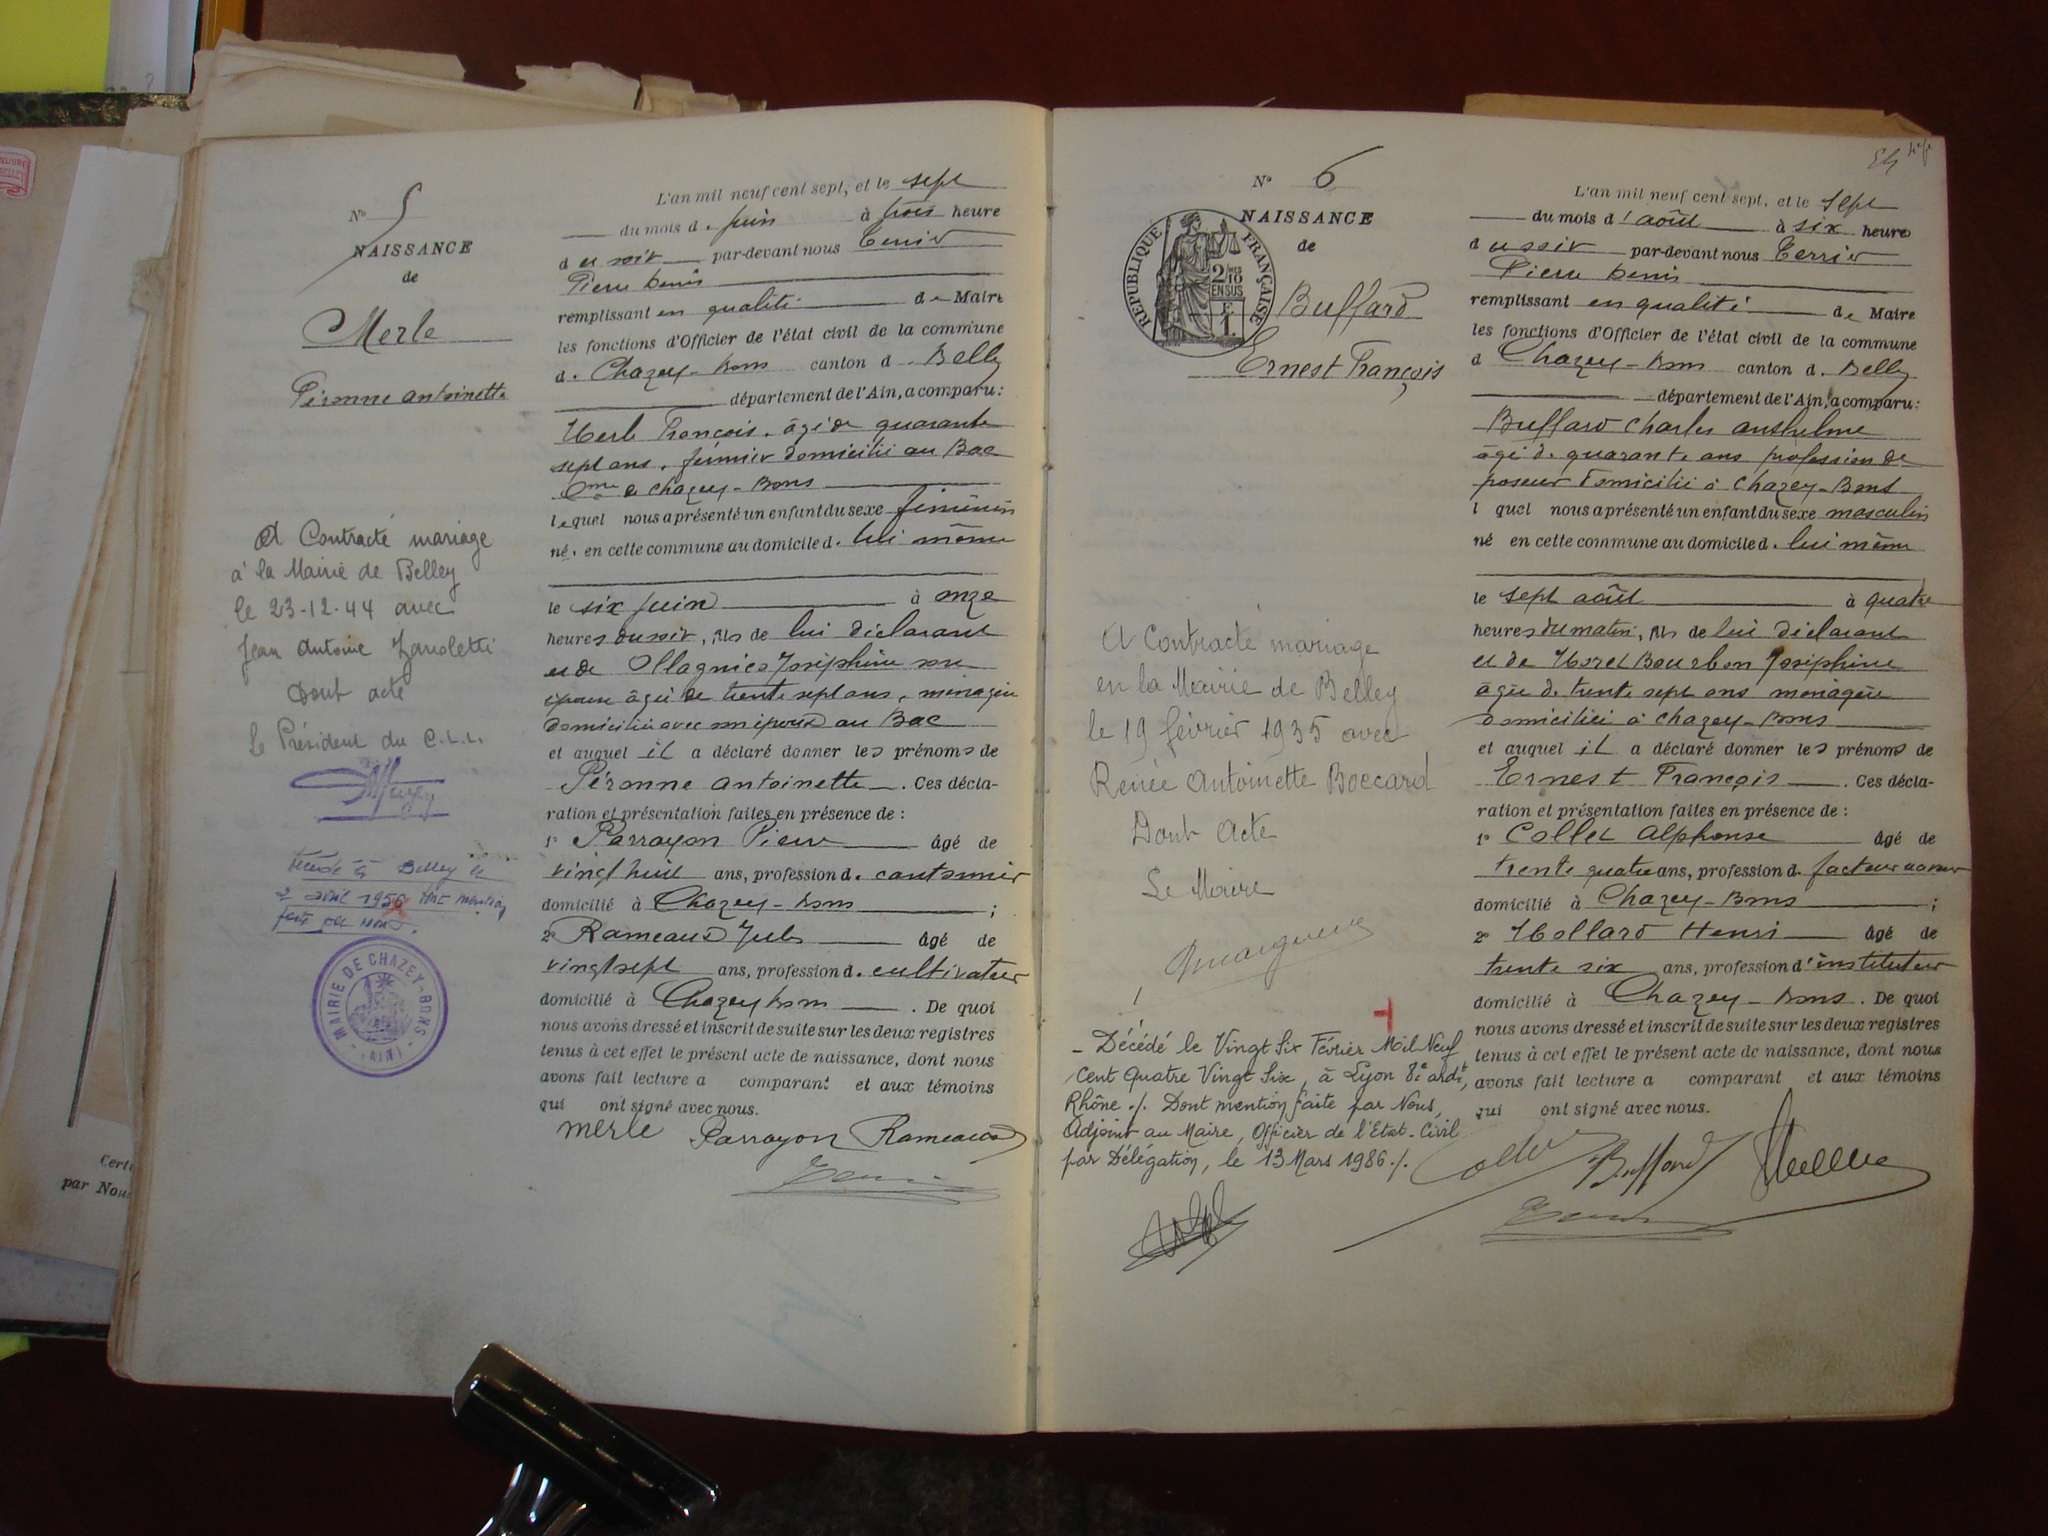 N° 5
NAISSANCE
de
Merle
Péronne Antoinette
A Contracté mariage
à la Mairie de Belley
le 23-12-44 avec
Jean Antoine Zanoletti
Dont acte
Le Président du C.L.L.
à Belley le
2 avril 1956
MAIRIE DE CHAZEY-BONS
(AIN)
L'an mil neuf cent sept, et le sept
du mois de juin à trois heure
du soir par-devant nous Terrier
Pierre Denis
remplissant en qualité de Maire
les fonctions d'Officier de l'état civil de la commune
de Chazey-Bons canton de Belley
département de l'Ain, a comparu:
Merle François, âgé de quarante
sept ans, fermier domicilié au Bac
Cne de Chazey-Bons
lequel nous a présenté un enfant du sexe féminin
né, en cette commune au domicile de lui même
le six juin à onze
heures du soir, fils de lui déclarant
et de Ollagnier Joséphine son
épouse âgée de trente sept ans, ménagère
domiciliée avec son époux au Bac
et auquel il a déclaré donner les prénoms de
Péronne Antoinette. Ces décla-
ration et présentation faites en présence de :
1° Parrayon Pierre âgé de
vingt huit ans, profession de cantonnier
domicilié à Chazey-Bons ;
2° Rameaux Jules âgé de
vingt sept ans, profession de cultivateur
domicilié à Chazey Bons. De quoi
nous avons dressé et inscrit de suite sur les deux registres
tenus à cet effet le présent acte de naissance, dont nous
avons fait lecture a comparant et aux témoins
qui ont signé avec nous.
merle Parrayon Rameaux
N° 6
NAISSANCE
de
REPUBLIQUE FRANÇAISE
2/10 EN SUS
Buffard
Ernest François
A Contracté mariage
en la Mairie de Belley
le 19 février 1935 avec
Renée Antoinette Boccard
Dont Acte
Le Maire
- Décédé le Vingt Six Février Mil Neuf
Cent Quatre Vingt Six, à Lyon 8e ardt,
Rhône ./. Dont mention faite par Nous,
Adjoint au Maire, Officier de l'Etat-Civil
par Délégation, le 13 Mars 1986 ./.
L'an mil neuf cent sept, et le sept
du mois d'août à six heure
du soir par-devant nous Terrier
Pierre Denis
remplissant en qualité de Maire
les fonctions d'Officier de l'état civil de la commune
d Chazey-Bons canton de Belley
département de l'Ain, a comparu:
Buffard Charles Anthelme
âgé de quarante ans profession de
poseur domicilié à Chazey-Bons
l quel nous a présenté un enfant du sexe masculin
né en cette commune au domicile de lui même
le sept août à quatre
heures du matin, fils de lui déclarant
et de Morel Bourbon Joséphine
âgée de trente sept ans ménagère
domiciliée à Chazey-Bons
et auquel il a déclaré donner les prénoms de
Ernest François. Ces décla-
ration et présentation faites en présence de :
1° Collet Alphonse âgé de
trente quatre ans, profession de facteur
domicilié à Chazey-Bons ;
2° Mollard Henri âgé de
trente six ans, profession d'instituteur
domicilié à Chazey-Bons. De quoi
nous avons dressé et inscrit de suite sur les deux registres
tenus à cet effet le présent acte de naissance, dont nous
avons fait lecture a comparant et aux témoins
qui ont signé avec nous.
Collet Buffard
par Nou